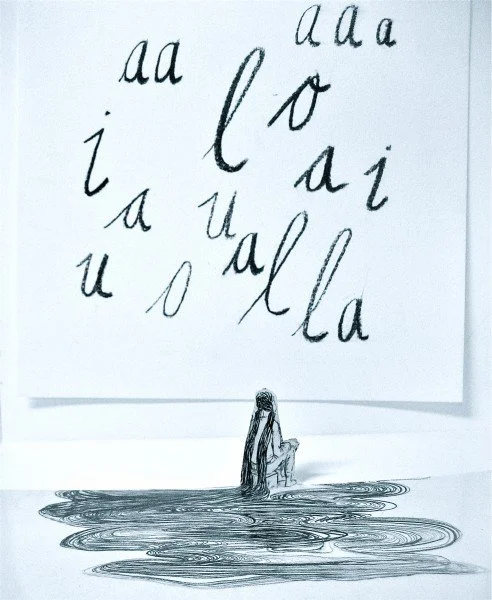 a a a
aa
l o
i
a i
a u
u o a l la